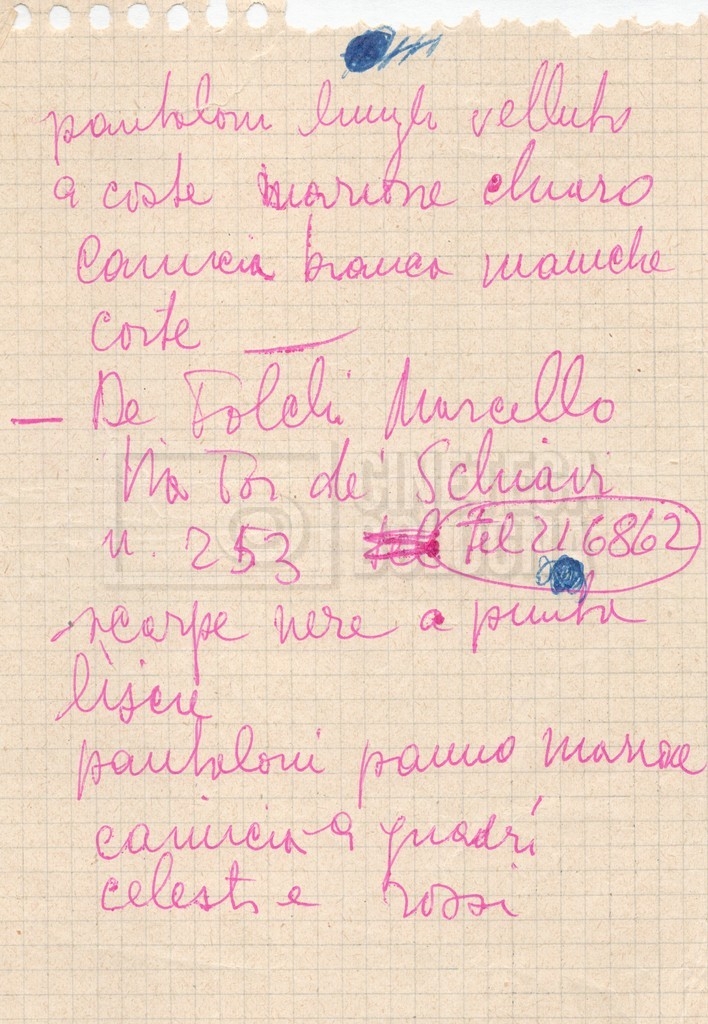 pantaloni lunghi velluto
a coste marrone chiaro
Camicia bianca maniche
corte —
— De Folchi Marcello
Via Tor de' Schiavi
n. 253 tel Tel 216862
scarpe nere a punta
liscie
pantaloni panno marrone
camicia a quadri
celesti e rossi
CINETECA
BOLOGNA